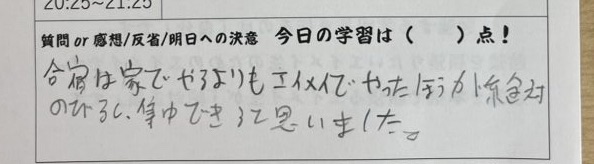 20:25~21:25
質問 or 感想/反省/明日への決意 今日の学習は( )点!
合宿は家でやるよりもエイメイでやったほうが絶対
のびるし、集中できると思いました。